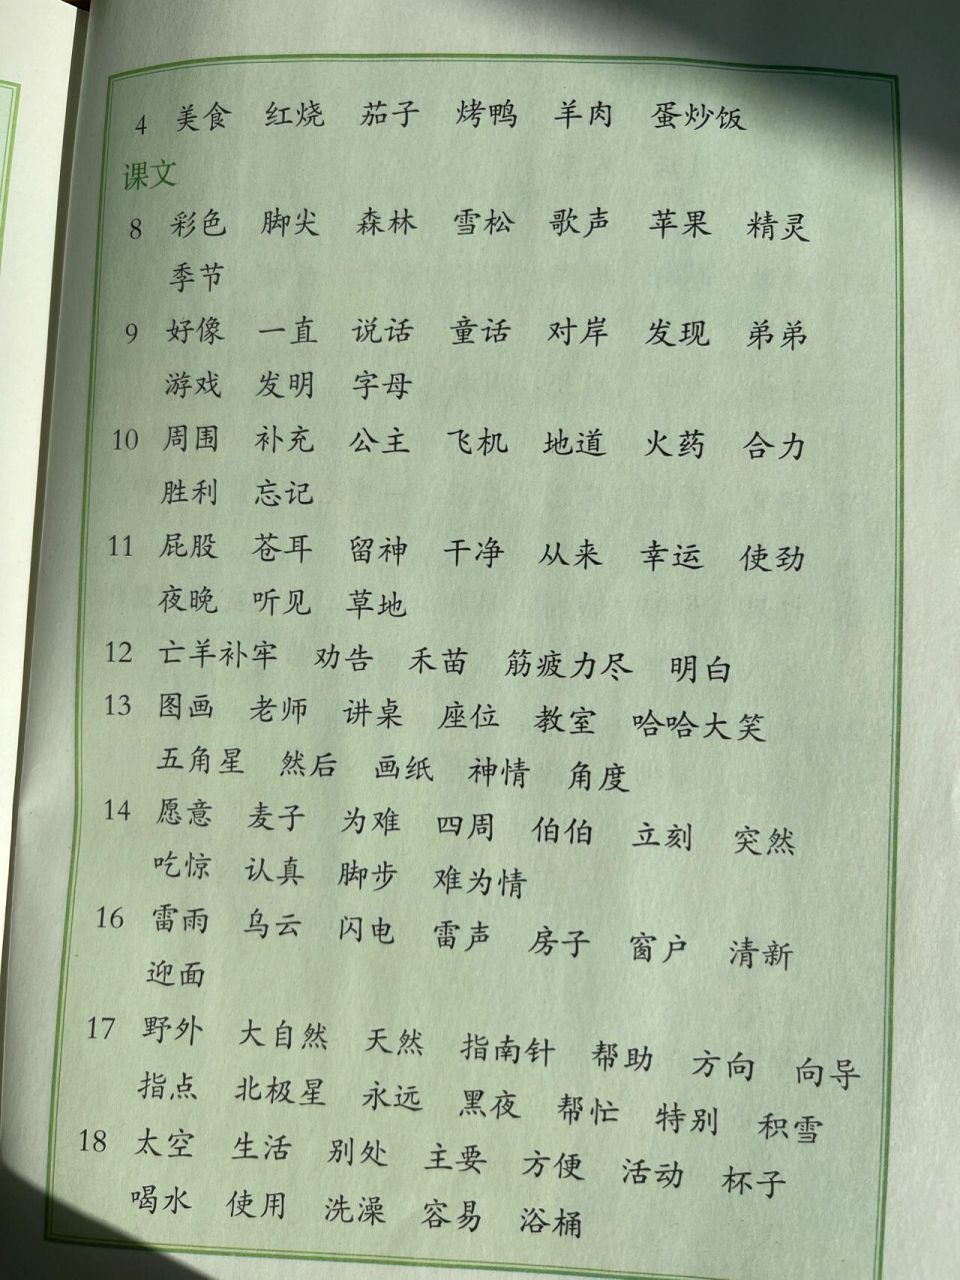 4 美食 红烧 茄子 烤鸭 羊肉 蛋炒饭
课文
8 彩色 脚尖 森林 雪松 歌声 苹果 精灵
季节
9 好像 一直 说话 童话 对岸 发现 弟弟
游戏 发明 字母
10 周围 补充 公主 飞机 地道 火药 合力
胜利 忘记
11 屁股 苍耳 留神 干净 从来 幸运 使劲
夜晚 听见 草地
12 亡羊补牢 劝告 禾苗 筋疲力尽 明白
13 图画 老师 讲桌 座位 教室 哈哈大笑
五角星 然后 画纸 神情 角度
14 愿意 麦子 为难 四周 伯伯 立刻 突然
吃惊 认真 脚步 难为情
16 雷雨 乌云 闪电 雷声 房子 窗户 清新
迎面
17 野外 大自然 天然 指南针 帮助 方向 向导
指点 北极星 永远 黑夜 帮忙 特别 积雪
18 太空 生活 别处 主要 方便 活动 杯子
喝水 使用 洗澡 容易 浴桶